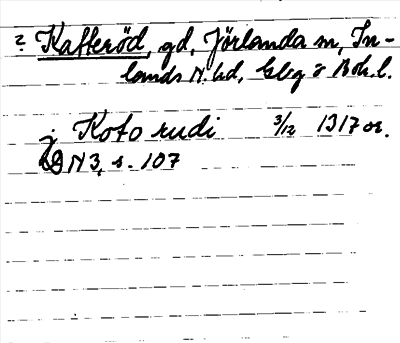 ? Kafferöd, gd, Jörlanda sn, In-
lands N. hd, Gbg o Boh. l.
j Koto rudi 3/12 1317 or.
DN 3, s. 107